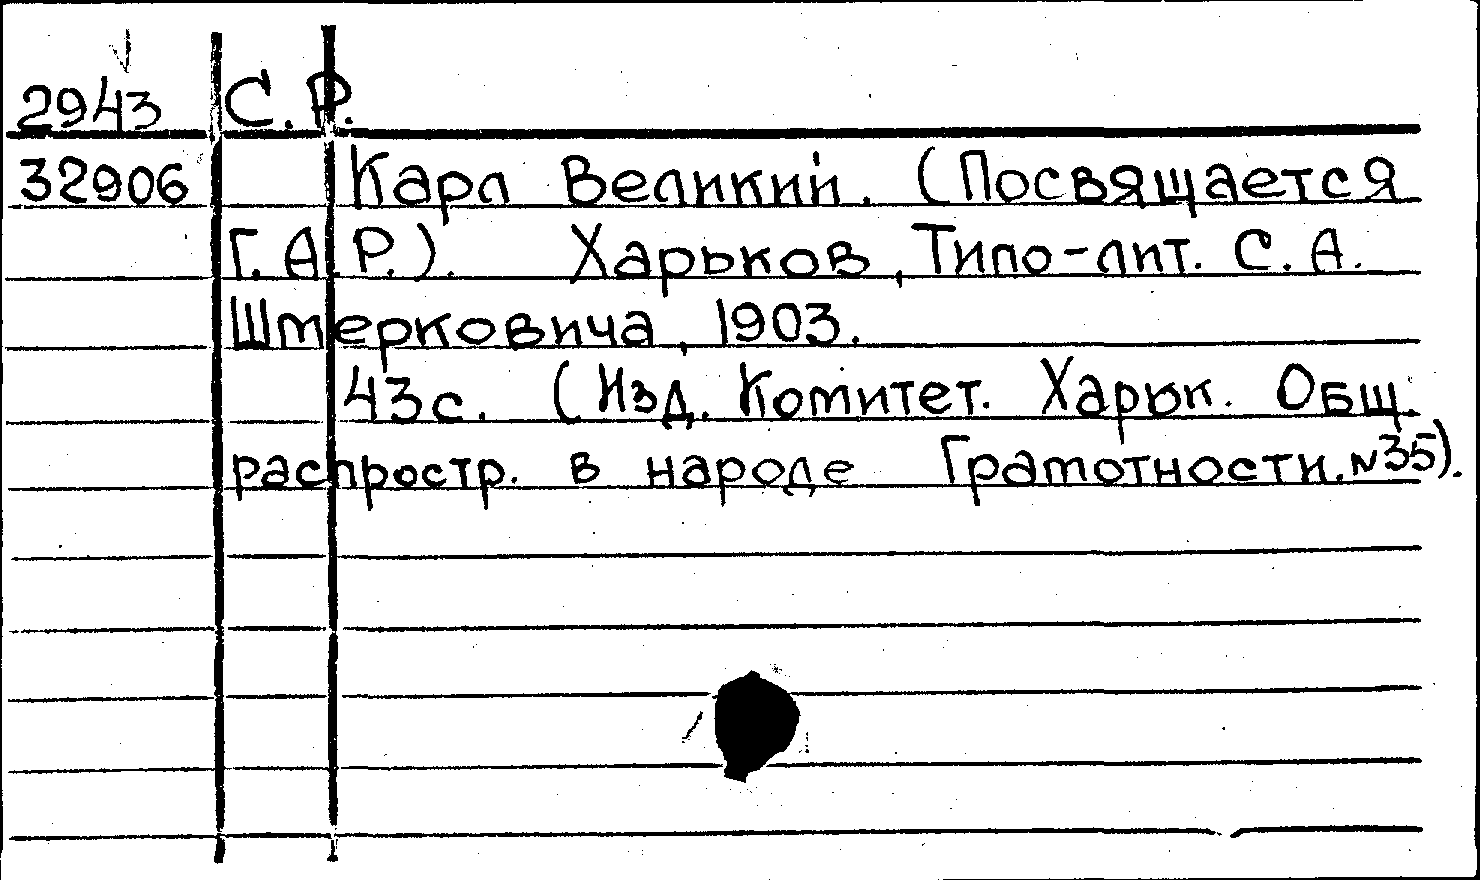 2943 С. Р.
32906 Карл Великий. (Посвящается
Г. А. Р.). Харьков, Типо-лит. С. А.
Штерковича, 1903.
43 с. (Изд. Комитет. Харьк. Общ.
распростр. в народе Грамотности. №35).